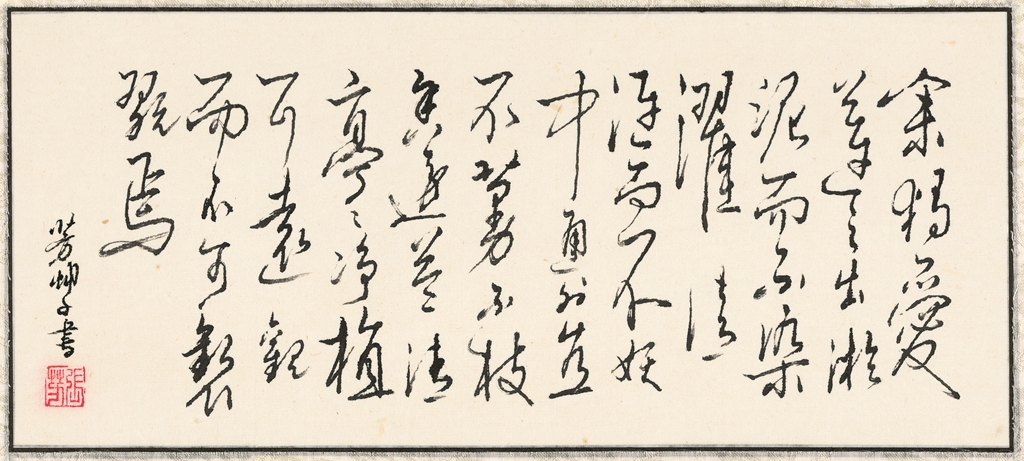 余獨愛
蓮之出淤
泥而不染
濯清
漣而不妖
中通外直
不蔓不枝
香遠益清
亭〻淨植
可遠觀
而不可褻
翫焉
芳艸子書